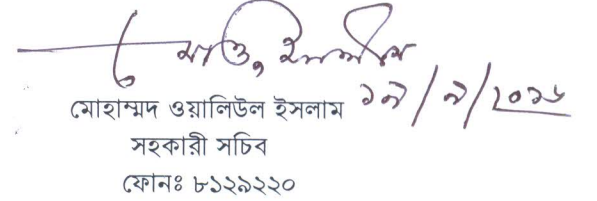 ১৯/৯/২০১৬
মোহাম্মদ ওয়ালিউল ইসলাম
সহকারী সচিব
ফোনঃ ৮১২৯২২০